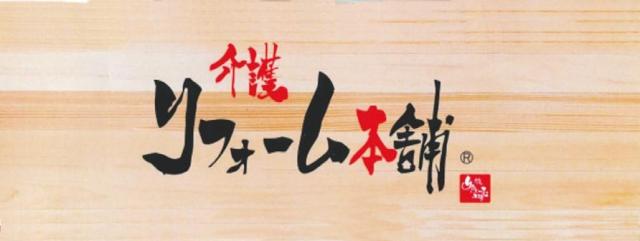 介護
リフォーム本舗®